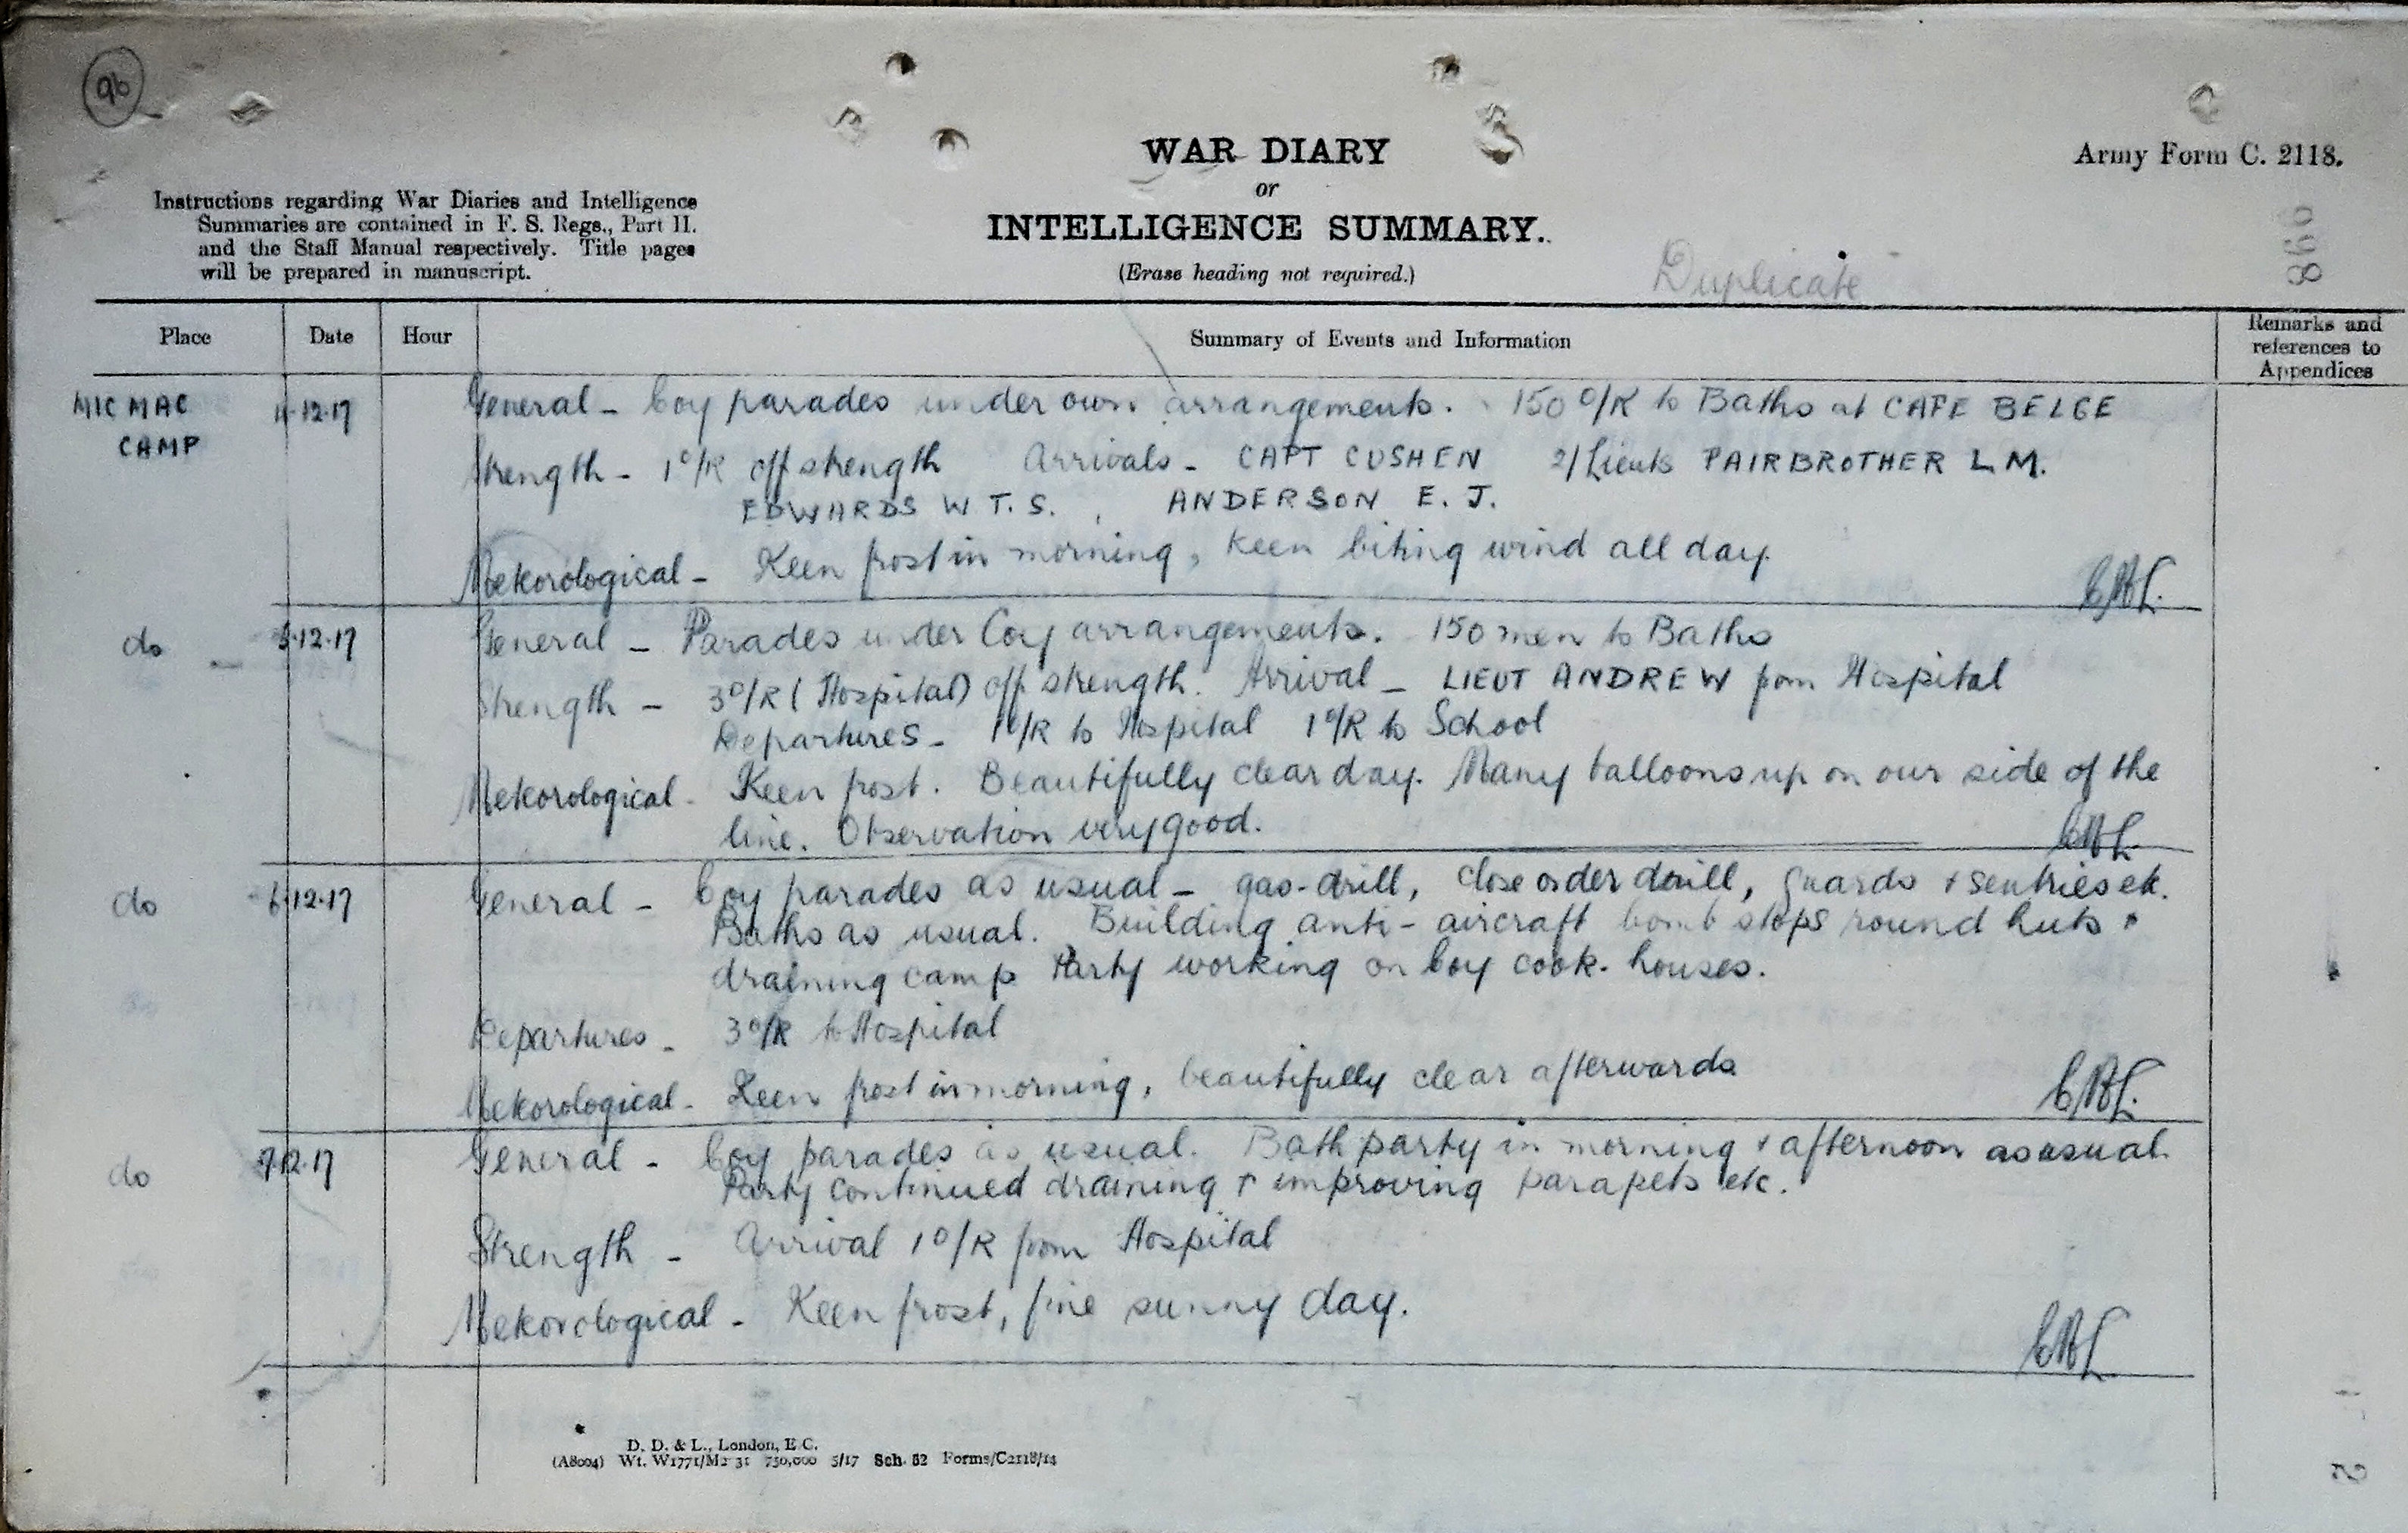 96
WAR DIARY
or
INTELLIGENCE SUMMARY.
(Erase heading not required.)
Army Form C. 2118.
Instructions regarding War Diaries and Intelligence
Summaries are contained in F. S. Regs., Part II.
and the Staff Manual respectively. Title pages
will be prepared in manuscript.
Duplicate
998
Place Date Hour Summary of Events and Information Remarks and
references to
Appendices
MIC MAC 4-12-17 General - Coy parades under own arrangements. 150 O/R to Baths at CAFE BELGE
CAMP Strength - 1 O/R off strength Arrivals - CAPT CUSHEN 2/Lieuts FAIRBROTHER L M.
EDWARDS W T. S., ANDERSON E. J.
Meteorological - Keen frost in morning, keen biting wind all day.
do 5-12-17 General - Parades under Coy arrangements. 150 men to Baths
Strength - 3 O/R (Hospital) off strength. Arrival - LIEUT ANDREW from Hospital
Departures - 1 O/R to Hospital 1 O/R to School
Meteorological - Keen frost. Beautifully clear day. Many balloons up on our side of the
line. Observation very good.
do 6-12-17 General - Coy parades as usual - gas-drill, close order drill, guards + sentries etc.
Baths as usual. Building anti-aircraft bomb stops round huts +
draining camp Party working on Coy cook-houses.
Departures - 3 O/R to Hospital
Meteorological - Keen frost in morning, beautifully clear afterwards
do 7-12-17 General - Coy parades as usual. Bath party in morning + afternoon as usual.
Party continued draining + improving parapets etc.
Strength - Arrival 1 O/R from Hospital
Meteorological - Keen frost, fine sunny day.
D. D. & L., London, E.C.
(A8004) Wt. W1771/M2 31 750,000 5/17 Sch. 52 Forms/C2118/14